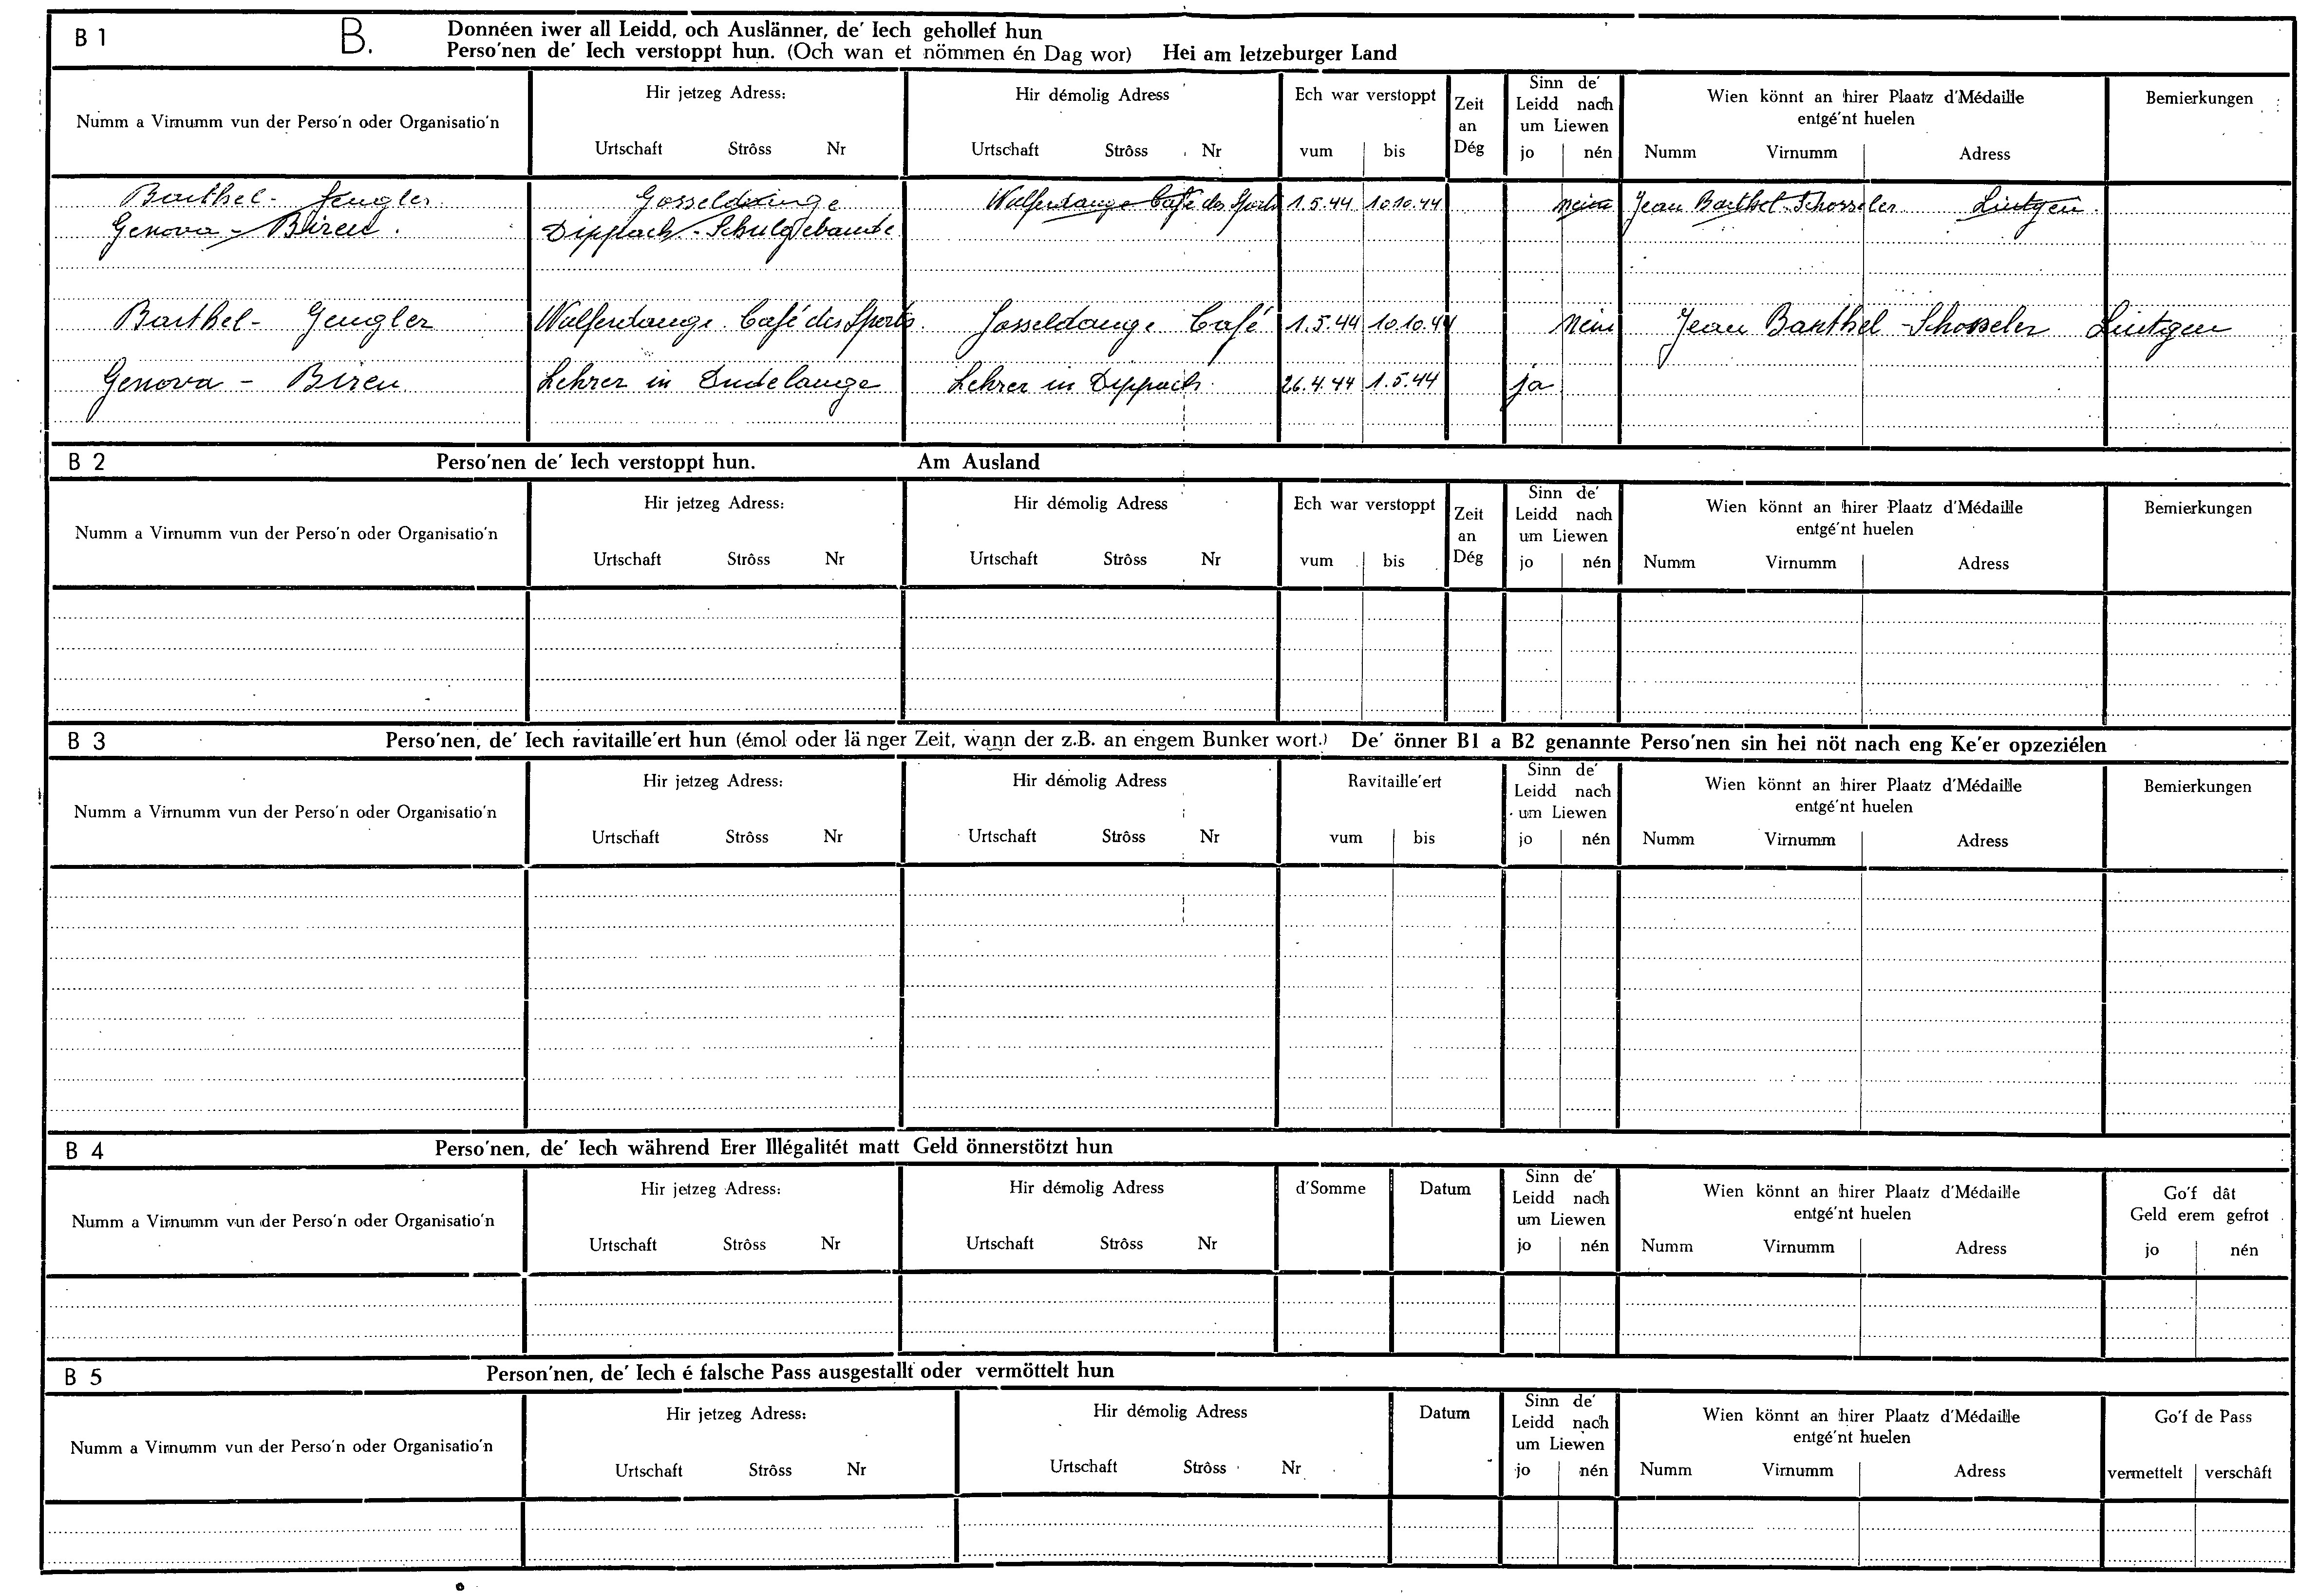 B 1 B. Donnéen iwer all Leidd, och Auslänner, de' Iech gehollef hun
Perso'nen de' Iech verstoppt hun. (Och wan et nömmen én Dag wor) Hei am letzeburger Land
Numm a Virnumm vun der Perso'n oder Organisatio'n
Hir jetzeg Adress:
Urtschaft Strôss Nr
Hir démolig Adress
Urtschaft Strôss Nr
Ech war verstoppt
vum bis
Zeit
an
Dég
Sinn de'
Leidd nach
um Liewen
jo nén
Wien könnt an hirer Plaatz d'Médaille
entgé'nt huelen
Numm Virnumm Adress
Bemierkungen
Barthel - Gengler Gosseldange Walferdange Café des Sports 1.5.44 10.10.44 nein Jean Barthel-Schosseler Lintgen
Genova - Biren. Dippach - Schulgebäude
Barthel - Gengler Walferdange Café des Sports Gosseldange Café 1.5.44 10.10.44 nein Jean Barthel - Schosseler Lintgen
Genova - Biren Lehrer in Dudelange Lehrer in Dippach. 26.4.44 1.5.44 ja
B 2 Perso'nen de' Iech verstoppt hun. Am Ausland
Numm a Virnumm vun der Perso'n oder Organisatio'n
Hir jetzeg Adress:
Urtschaft Strôss Nr
Hir démolig Adress
Urtschaft Strôss Nr
Ech war verstoppt
vum bis
Zeit
an
Dég
Sinn de'
Leidd nach
um Liewen
jo nén
Wien könnt an hirer Plaatz d'Médaille
entgé'nt huelen
Numm Virnumm Adress
Bemierkungen
B 3 Perso'nen, de' Iech ravitaille'ert hun (émol oder länger Zeit, wann der z.B. an engem Bunker wort.) De' önner B1 a B2 genannte Perso'nen sin hei nöt nach eng Ke'er opzeziélen
Numm a Virnumm vun der Perso'n oder Organisatio'n
Hir jetzeg Adress:
Urtschaft Strôss Nr
Hir démolig Adress
Urtschaft Strôss Nr
Ravitaille'ert
vum bis
Sinn de'
Leidd nach
um Liewen
jo nén
Wien könnt an hirer Plaatz d'Médaille
entgé'nt huelen
Numm Virnumm Adress
Bemierkungen
B 4 Perso'nen, de' Iech während Erer Illégalitét matt Geld önnerstötzt hun
Numm a Virnumm vun der Perso'n oder Organisatio'n
Hir jetzeg Adress:
Urtschaft Strôss Nr
Hir démolig Adress
Urtschaft Strôss Nr
d'Somme
Datum
Sinn de'
Leidd nach
um Liewen
jo nén
Wien könnt an hirer Plaatz d'Médaille
entgé'nt huelen
Numm Virnumm Adress
Go'f dât
Geld erem gefrot
jo nén
B 5 Person'nen, de' Iech é falsche Pass ausgestallt oder vermöttelt hun
Numm a Virnumm vun der Perso'n oder Organisatio'n
Hir jetzeg Adress:
Urtschaft Strôss Nr
Hir démolig Adress
Urtschaft Strôss Nr
Datum
Sinn de'
Leidd nach
um Liewen
jo nén
Wien könnt an hirer Plaatz d'Médaille
entgé'nt huelen
Numm Virnumm Adress
Go'f de Pass
vermettelt verschâft